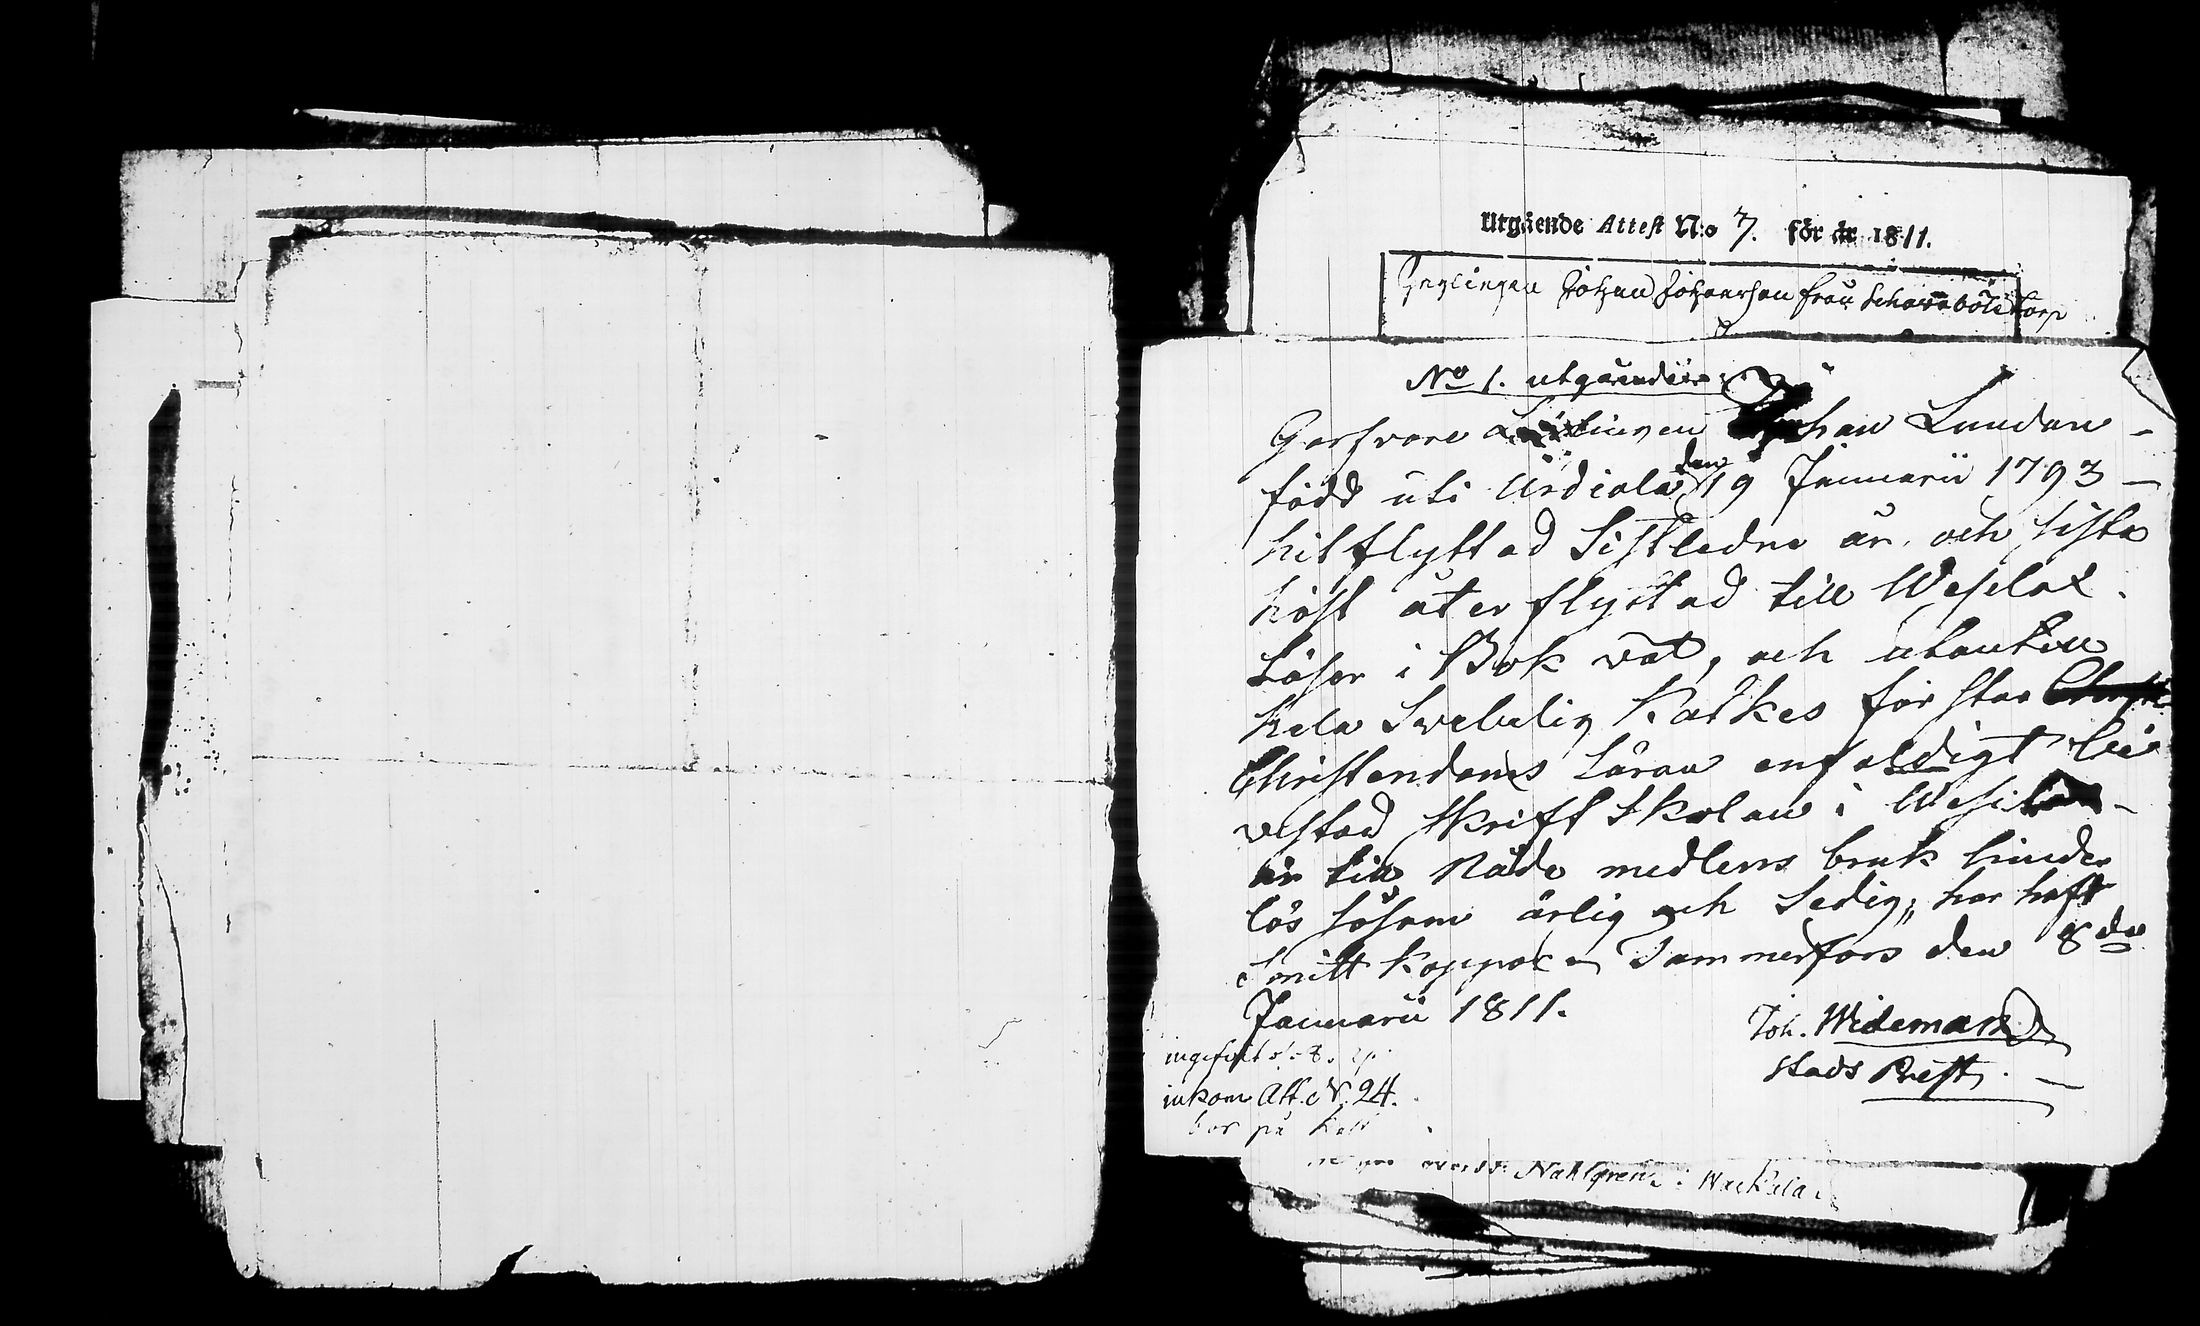 Utgående Attest N:o 7. för år 1811.
Ynglingen Johan Johansson från
No 1. utgåendes
Garfvare Johan Lundan
född uti Urdiala den 19 Januarii 1793
hitflyttad Sistledne år, och sista
höst återflyttad till Wesilax.
Läser i Bok wäl, och utantill
hela Svebelig Katkes förstår
Christendoms Läran enfaldigt be
vistad Skriftskolan i Wesilax
är till Nåde medlens bruk hinder
lös såsom ärlig och Sedig, har haft
Smitt Koppor Tammerfors den 8de
Januarii 1811.
Joh. Widemark
Stads Prest.
ingefört
inkom Att. N. 24.
bor på
Nahlgren